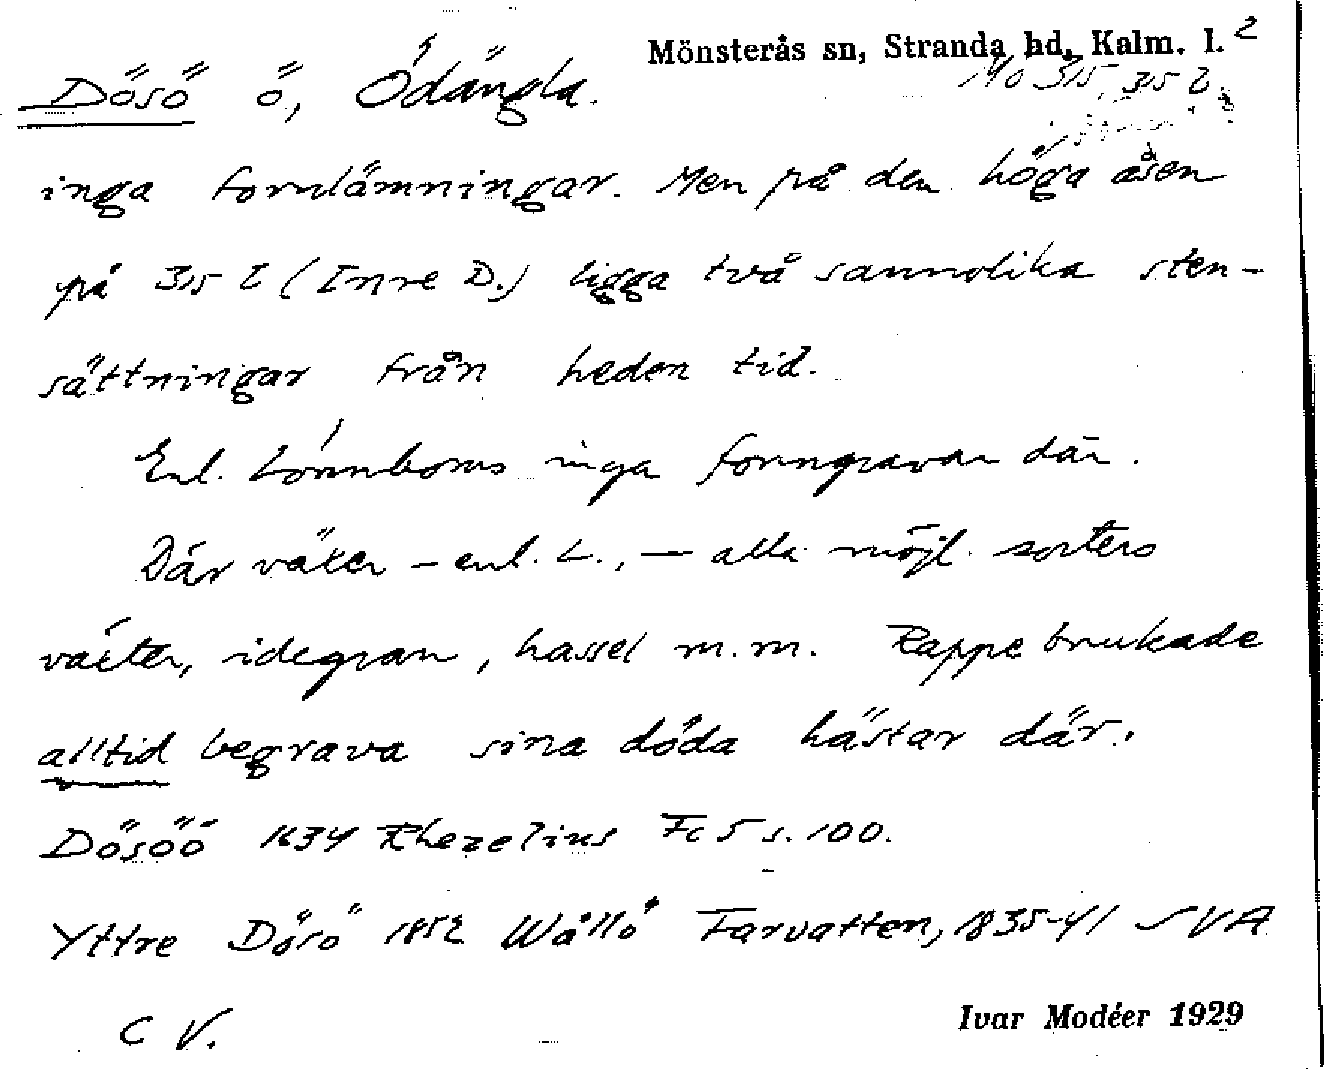 Mönsterås sn, Stranda hd, Kalm. l. 2
Dösö ö, Ödängla.
140 315, 315 2.
inga fornlämningar. Men på den höga åsen
på 315 2 (Inre D.) ligga två sannolika sten-
sättningar från heden tid.
Enl. Lönnboms inga forngravar där.
Där växer - enl. L., - alla möjl. sorters
växter, idegran, hassel m.m. Rappe brukade
alltid begrava sina döda hästar där.
Dösöö 1634 Rhezelius Fc 5 s. 100.
Yttre Dösö 1852 Wållö Farvatten, 1835-41 SVA
C V.
Ivar Modéer 1929